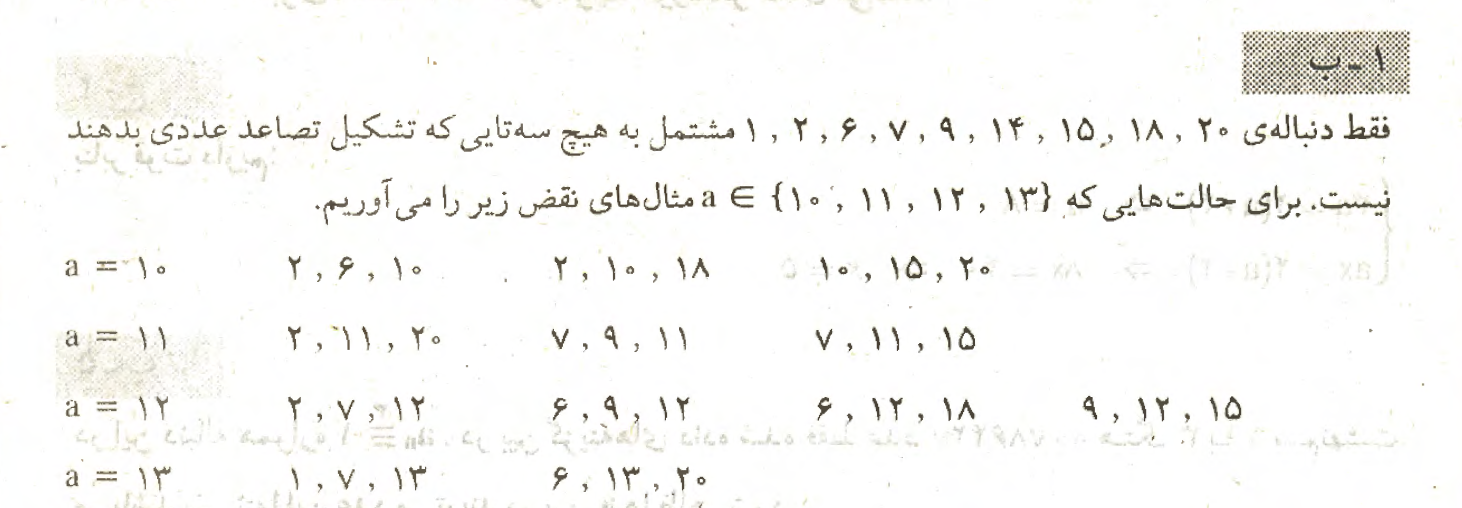 ۱ - ب
فقط دنباله‌ی ۲۰ , ۱۸ , ۱۵ , ۱۴ , ۹ , ۷ , ۶ , ۲ , ۱ مشتمل به هیچ سه‌تایی که تشکیل تصاعد عددی بدهند
نیست. برای حالت‌هایی که a ∈ {۱۰ , ۱۱ , ۱۲ , ۱۳} مثال‌های نقض زیر را می‌آوریم.
a = ۱۰ ۲ , ۶ , ۱۰ ۲ , ۱۰ , ۱۸ ۱۰ , ۱۵ , ۲۰
a = ۱۱ ۲ , ۱۱ , ۲۰ ۷ , ۹ , ۱۱ ۷ , ۱۱ , ۱۵
a = ۱۲ ۲ , ۷ , ۱۲ ۶ , ۹ , ۱۲ ۶ , ۱۲ , ۱۸ ۹ , ۱۲ , ۱۵
a = ۱۳ ۱ , ۷ , ۱۳ ۶ , ۱۳ , ۲۰